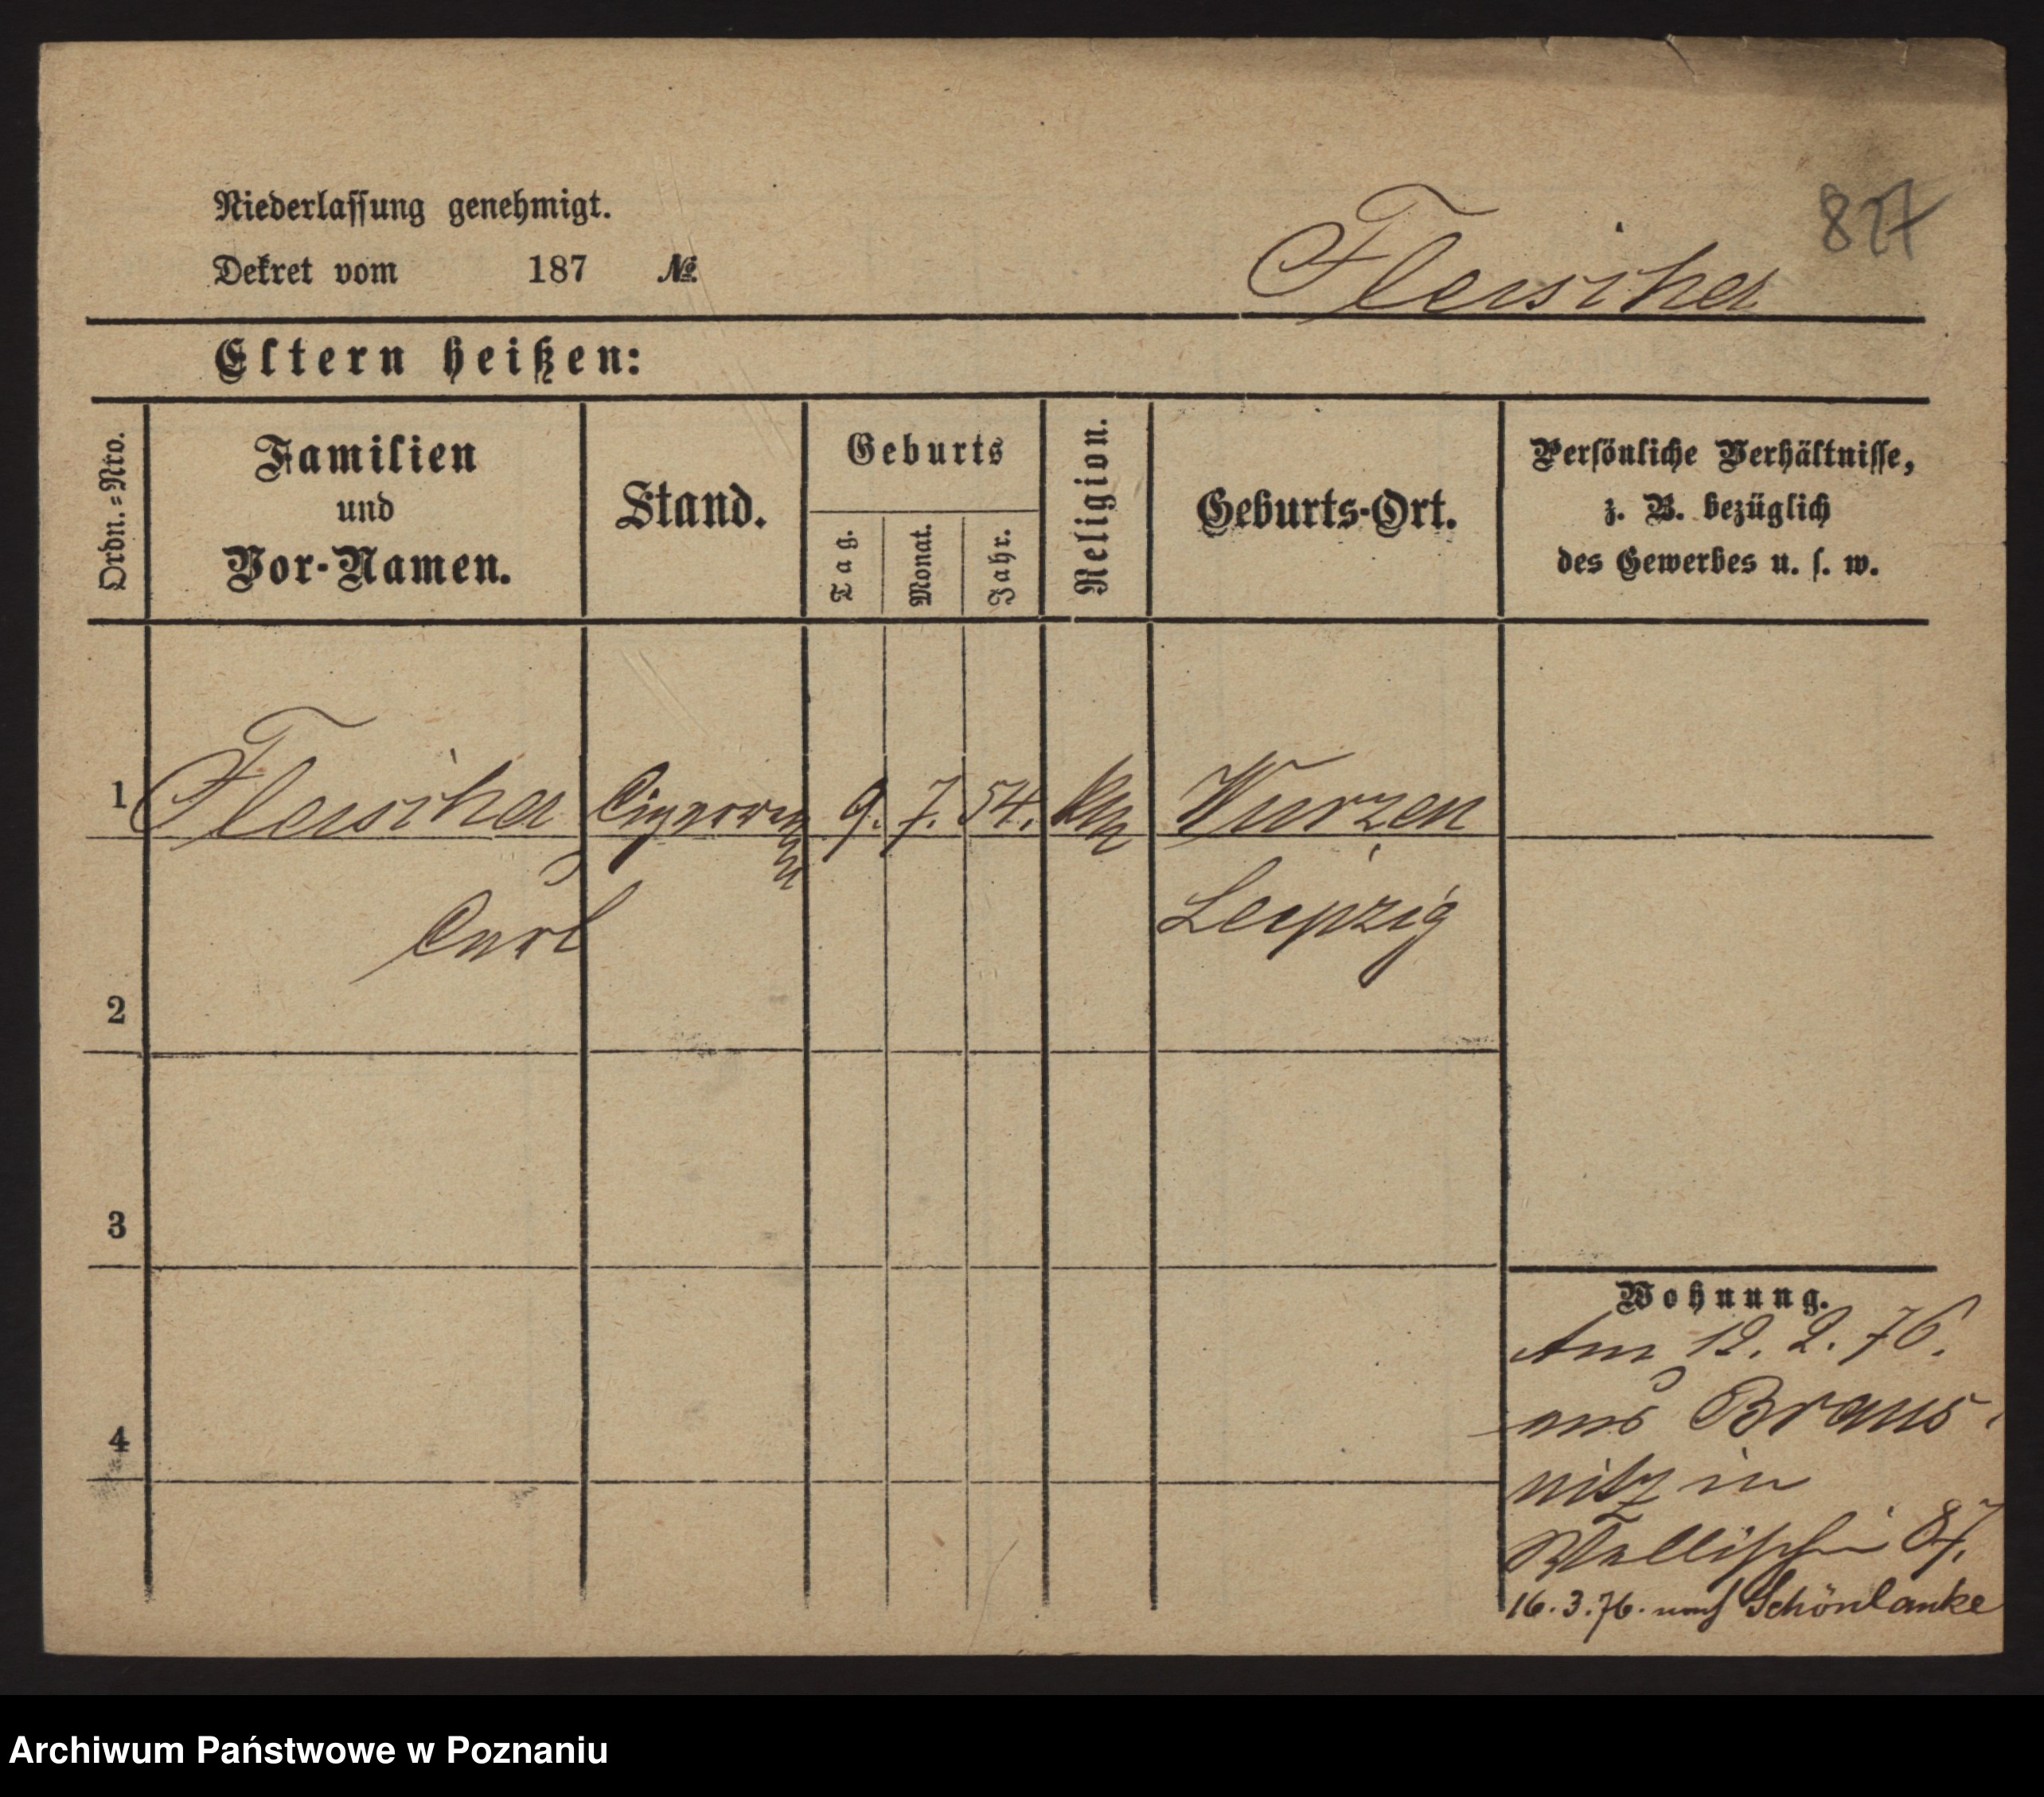 Niederlassung genehmigt.
827
Dekret vom 187 №
Fleischer
Eltern heißen:
Ordn.=Nro.
Familien
und
Vor-Namen.
Stand.
Geburts
Tag.
Monat.
Jahr.
Religion.
Geburts-Ort.
Persönliche Verhältnisse,
z. B. bezüglich
des Gewerbes u. s. w.
1 Fleischer 9. 7. 54. Wurzen
Carl Leipzig
2
3
4
Wohnung.
Am 12. 2. 76.
aus Braus-
nitz in
Wallischei 87.
16. 3. 76. nach Schönlanke
Archiwum Państwowe w Poznaniu